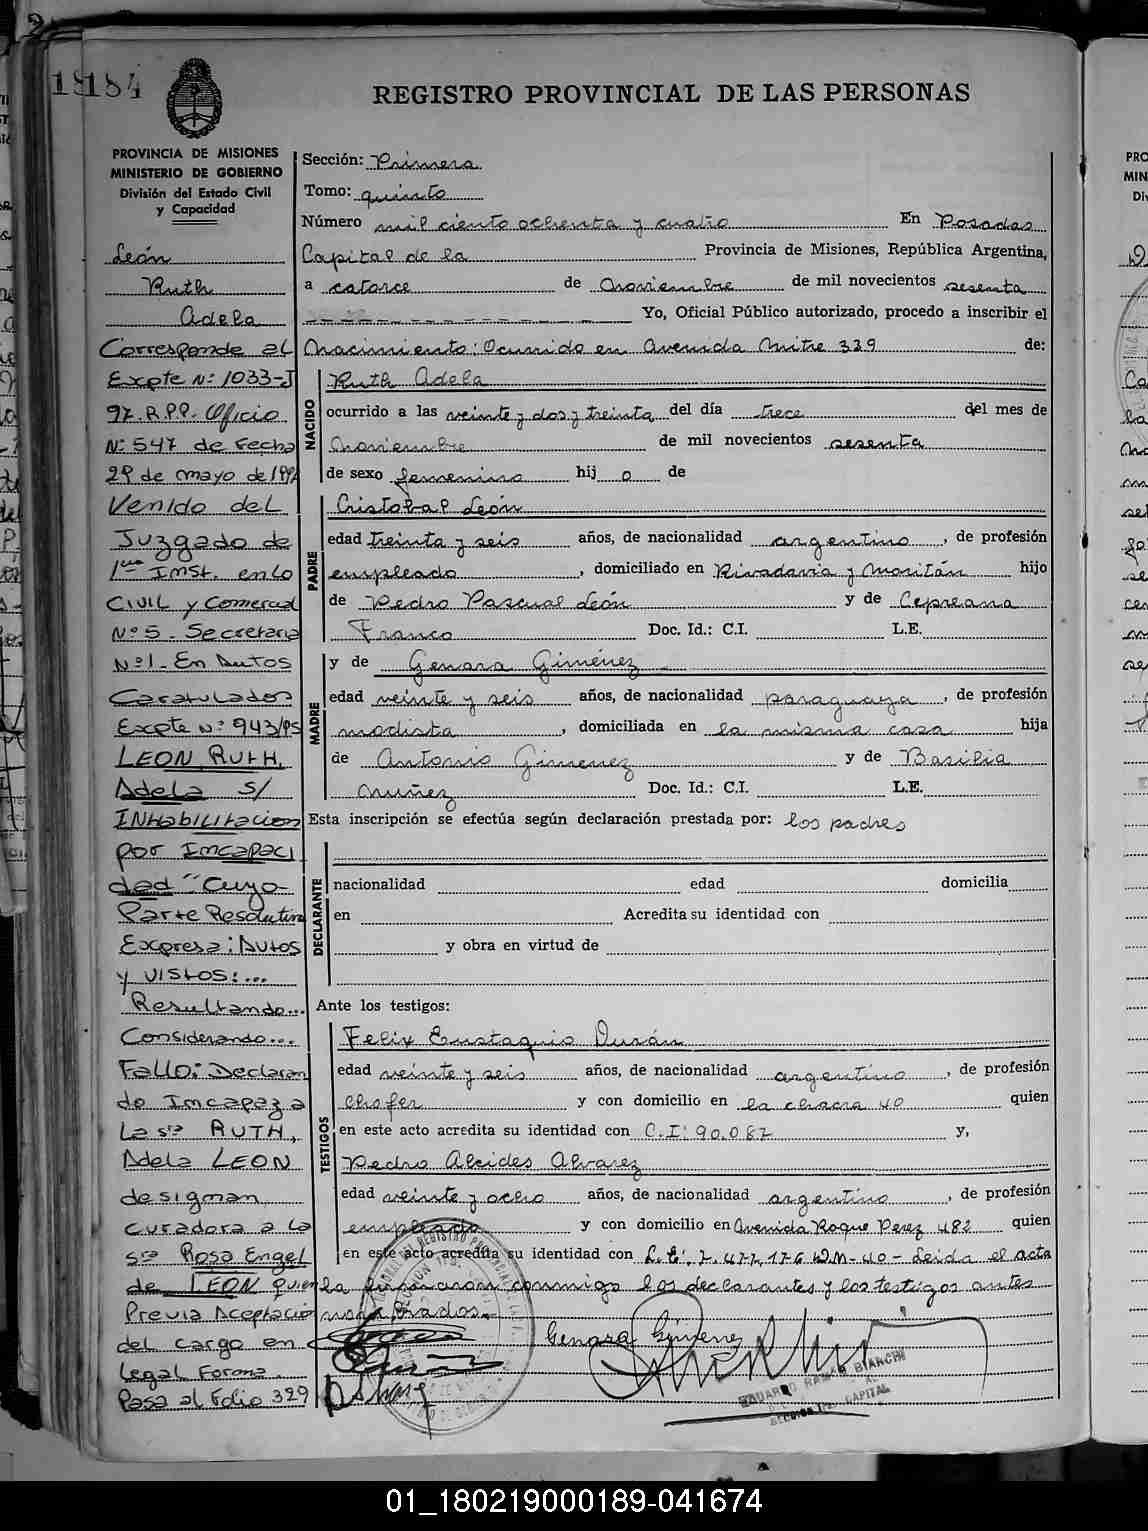 184
REGISTRO PROVINCIAL DE LAS PERSONAS
PROVINCIA DE MISIONES
MINISTERIO DE GOBIERNO
División del Estado Civil
y Capacidad
León
Ruth
Adela
Corresponde al
Expte Nº: 1033-J
97. R.P.P. Oficio
Nº 547 de Fecha
29 de mayo de 199
Venido del
Juzgado de
1ra Inst. en Lo
Civil y Comercial
Nº 5 - Secretaria
Nº 1 - En Autos
Caratulados
Expte Nº: 943/95
LEON, RUTH,
Adela s/
INHabilitacion
por Imcapaci
dad" Cuyo
Parte Resolutiva
Expresa: Autos
y VISTOS:...
Resultando...
Considerando...
FALLO: Declaran
do Imcapaz a
La sra RUTH,
Adela LEON
designan
curadora a La
sra Rosa Engel
de LEON quien
Previa Aceptacion
del cargo en
Legal Forma.
Pasa al Folio 329
Sección: Primera
Tomo: quinto
Número mil ciento ochenta y cuatro En Posadas
Capital de la Provincia de Misiones, República Argentina,
a catorce de noviembre de mil novecientos sesenta
Yo, Oficial Público autorizado, procedo a inscribir el
nacimiento: Ocurrido en Avenida Mitre 329 de:
NACIDO
Ruth Adela
ocurrido a las veinte y dos y treinta del día trece del mes de
noviembre de mil novecientos sesenta
de sexo femenino hij o de
PADRE
Cristobal León
edad treinta y seis años, de nacionalidad argentino, de profesión
empleado, domiciliado en Rivadavia y Moritán hijo
de Pedro Pascual León y de Cepreana
Franco Doc. Id.: C.I. L.E.
MADRE
y de Genara Giménez
edad veinte y seis años, de nacionalidad paraguaya, de profesión
modista, domiciliada en la misma casa hija
de Antonio Gimenez y de Basilia
Nuñez Doc. Id.: C.I. L.E.
Esta inscripción se efectúa según declaración prestada por: los padres
DECLARANTE
nacionalidad edad domicilia
en Acredita su identidad con
y obra en virtud de
Ante los testigos:
TESTIGOS
Felix Eustaquio Durán
edad veinte y seis años, de nacionalidad argentino, de profesión
chofer y con domicilio en la chacra 40 quien
en este acto acredita su identidad con C.I: 90.087 y,
Pedro Alcides Alvarez
edad veinte y ocho años, de nacionalidad argentino, de profesión
empleado y con domicilio en Avenida Roque Perez 482 quien
en este acto acredita su identidad con L.E: 7.477.176 DM-40- Leida el acta
la firmaron conmigo los declarantes y los testigos antes
nombrados.
Genara Gimenez
EDUARDO RAMON BIANCHI
CAPITAL
01_180219000189-041674